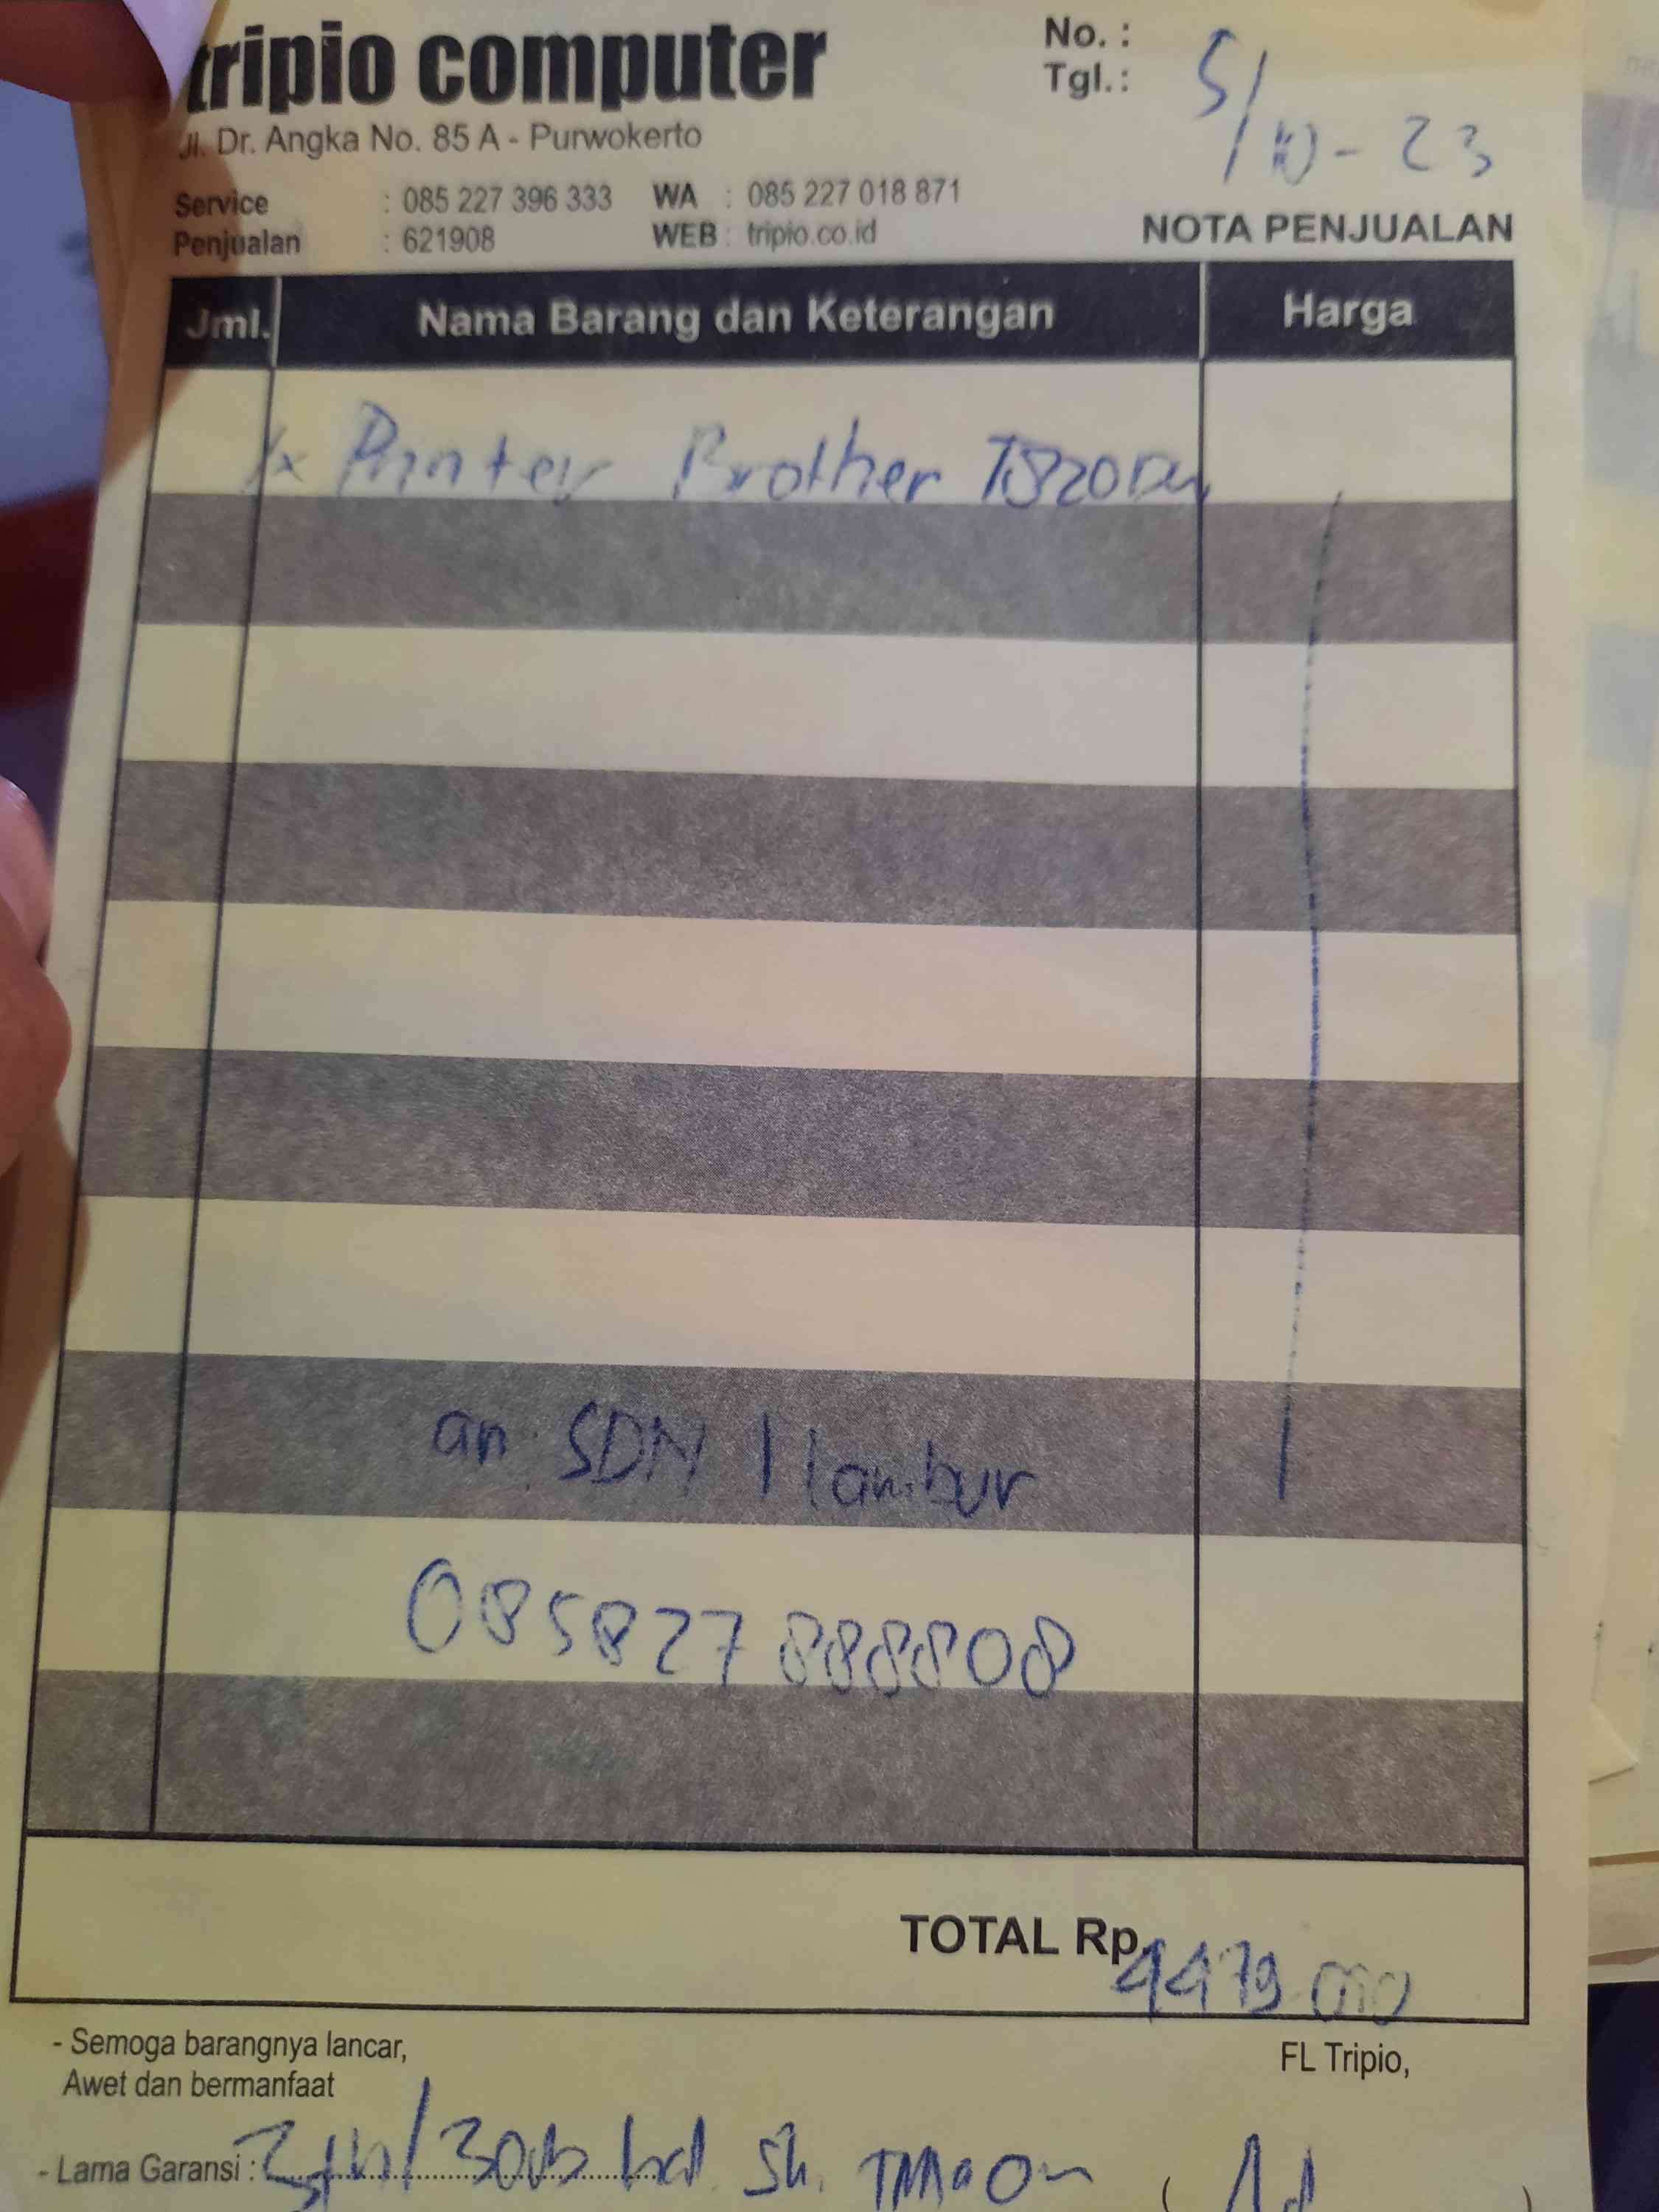 tripio computer
No. :
Tgl. : 5/10-23
Jl. Dr. Angka No. 85 A - Purwokerto
Service : 085 227 396 333 WA : 085 227 018 871
Penjualan : 621908 WEB : tripio.co.id
NOTA PENJUALAN
Jml. Nama Barang dan Keterangan Harga
1x Printer Brother T820DW
an SDN 1 lambur
085827888808
TOTAL Rp. 4479 000
- Semoga barangnya lancar,
Awet dan bermanfaat
FL Tripio,
- Lama Garansi : 3th/30rb